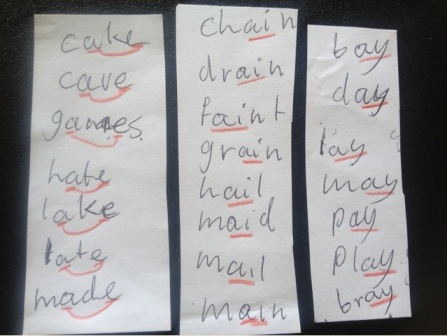 cake
cave
games
hate
lake
late
made
chain
drain
faint
grain
hail
maid
mail
main
bay
day
lay
may
pay
play
bray